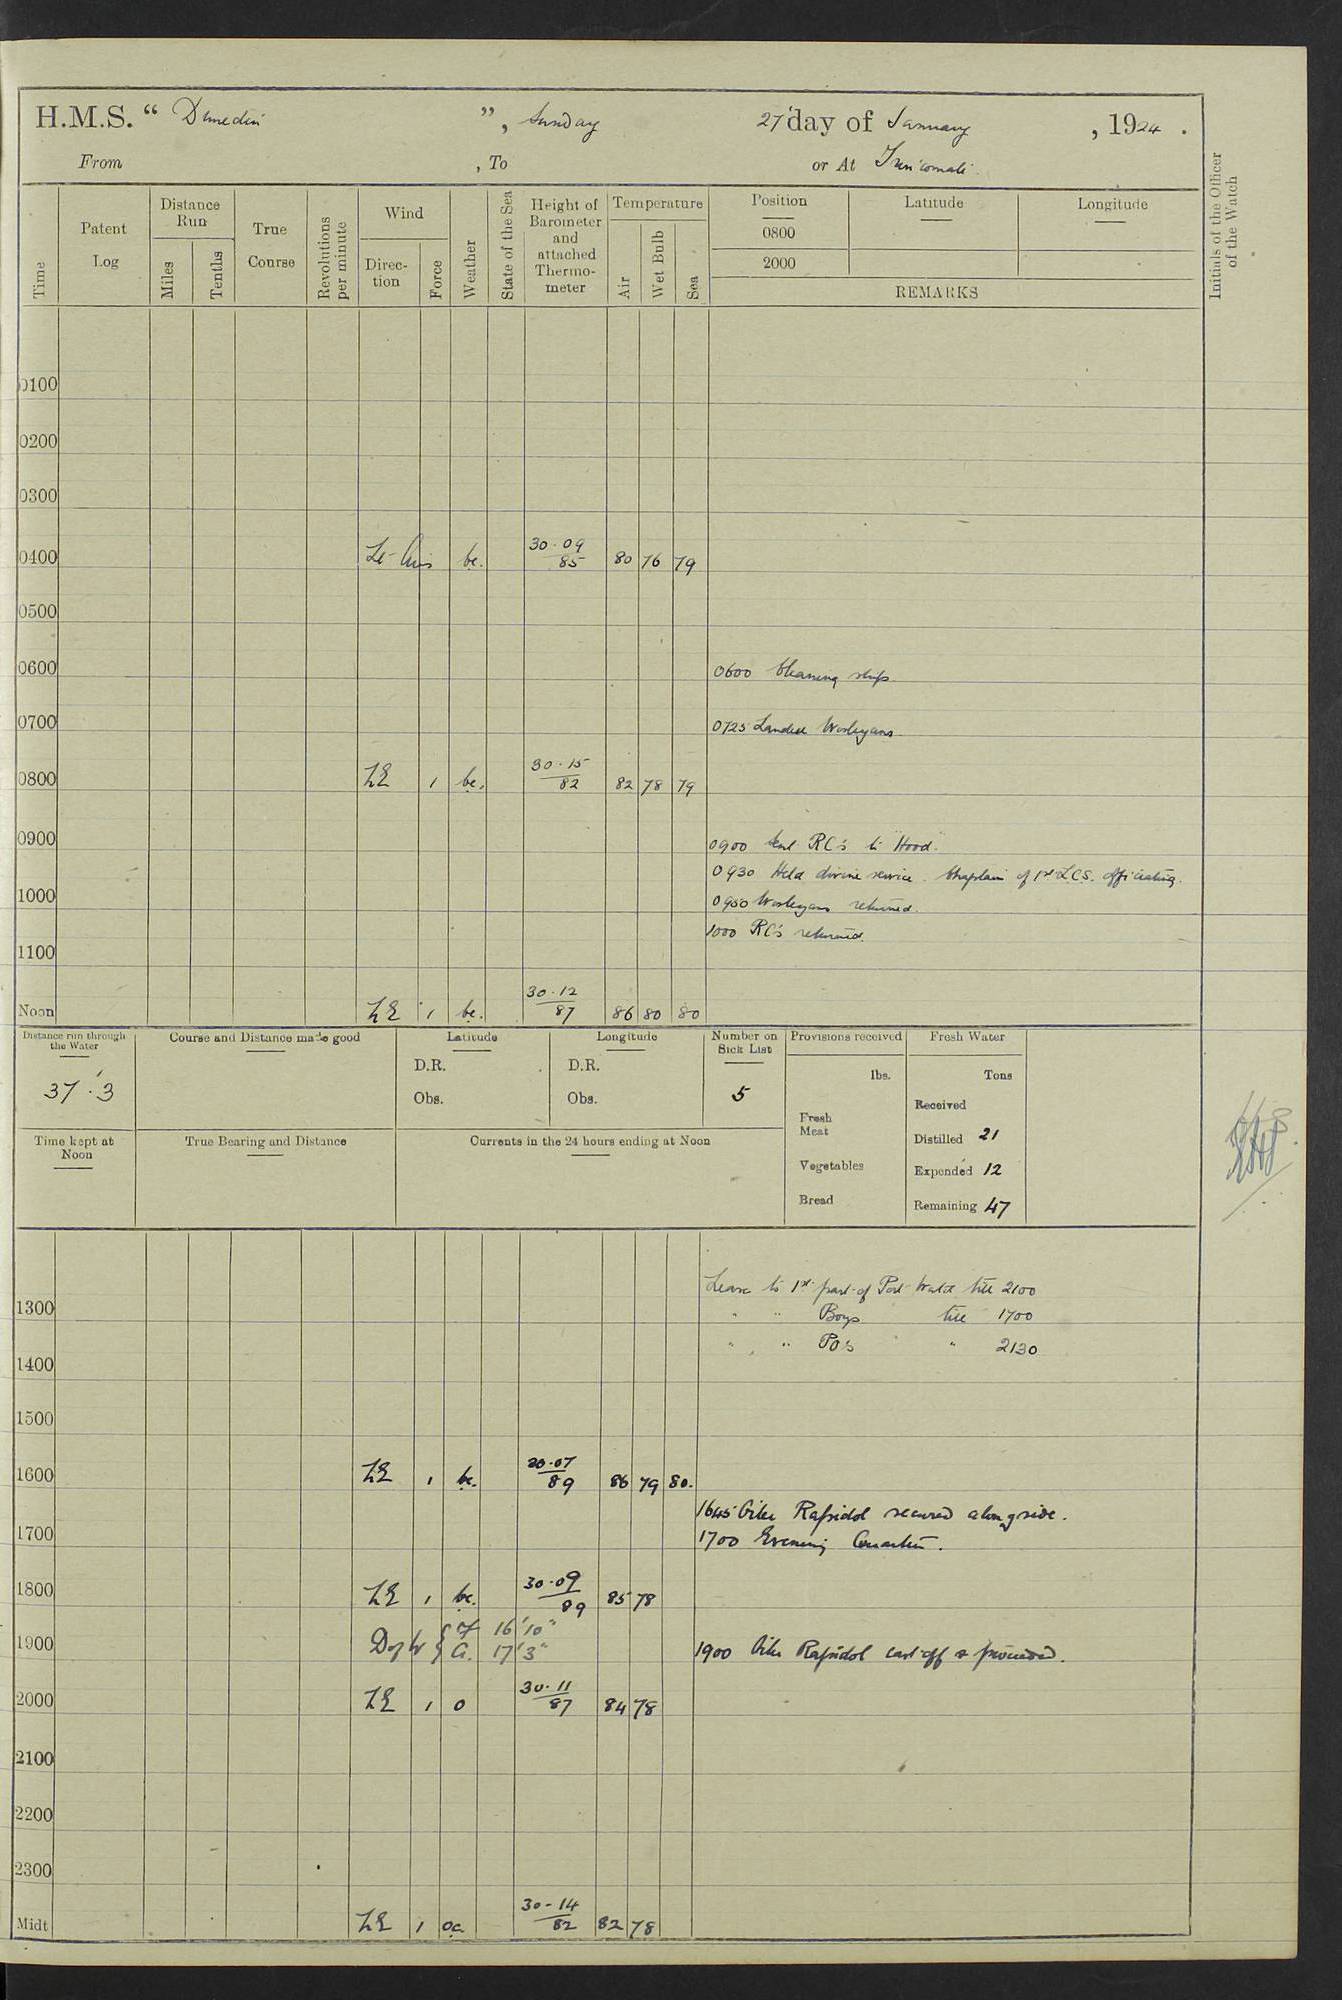 H.M.S. “ Dunedin ”, Sunday 27 day of January , 1924 .
From , To or At Trincomali
Time
Patent Log
Distance Run
Miles
Tenths
True Course
Revolutions per minute
Wind
Direc-tion
Force
Weather
State of the Sea
Height of Barometer and attached Thermo-meter
Temperature
Air
Wet Bulb
Sea
Position
0800
2000
Latitude
Longitude
REMARKS
Initials of the Officer of the Watch
0100
0200
0300
0400 Lt Airs bc. 30.09/85 80 76 79
0500
0600 0600 Cleaning ship
0700 0725 Landed Wesleyans.
0800 1 bc. 30.15/82 82 78 79
0900 0900 Sent RC's to "Hood".
0930 Held divine service. Chaplain of 1st L.C.S. officiating.
1000 0950 Wesleyans returned.
1000 RC's returned.
1100
Noon 1 bc. 30.12/87 86 80 80
Distance run through the Water
37.3
Course and Distance made good
Latitude
D.R.
Obs.
Longitude
D.R.
Obs.
Number on Sick List
5
Provisions received
lbs.
Fresh Meat
Vegetables
Bread
Fresh Water
Tons
Received
Distilled 21
Expended 12
Remaining 47
Time kept at Noon
True Bearing and Distance
Currents in the 24 hours ending at Noon
Leave to 1st part of Port Watch till 2100
1300 " " Boys till 1700
" " PO's " 2130
1400
1500
1600 1 bc. 30.07/89 86 79 80.
1645 Oiler Rapidol secured alongside.
1700 1700 Evening Quarters.
1800 1 bc. 30.09/89 85 78
F 16' 10"
1900 A. 17' 3" 1900 Oiler Rapidol cast off & proceeded.
2000 1 o 30.11/87 84 78
2100
2200
2300
Midt 1 oc 30.14/82 82 78